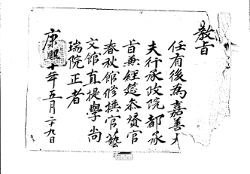 教旨
任有後為嘉善大
夫行承政院都承
旨兼經筵參贊官
春秋館修撰官藝
文館直提學尚
瑞院正者
康熙十年五月二十九日